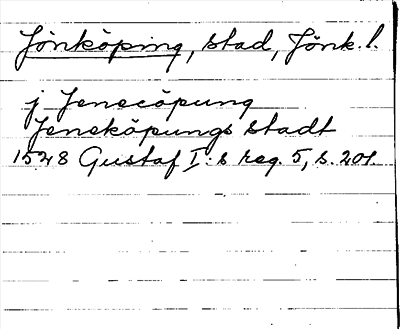 Jönköping, stad, Jönk. l.
j Jenecöpung
Jeneköpungs stadt
1528 Gustaf I:s reg. 5, s. 201